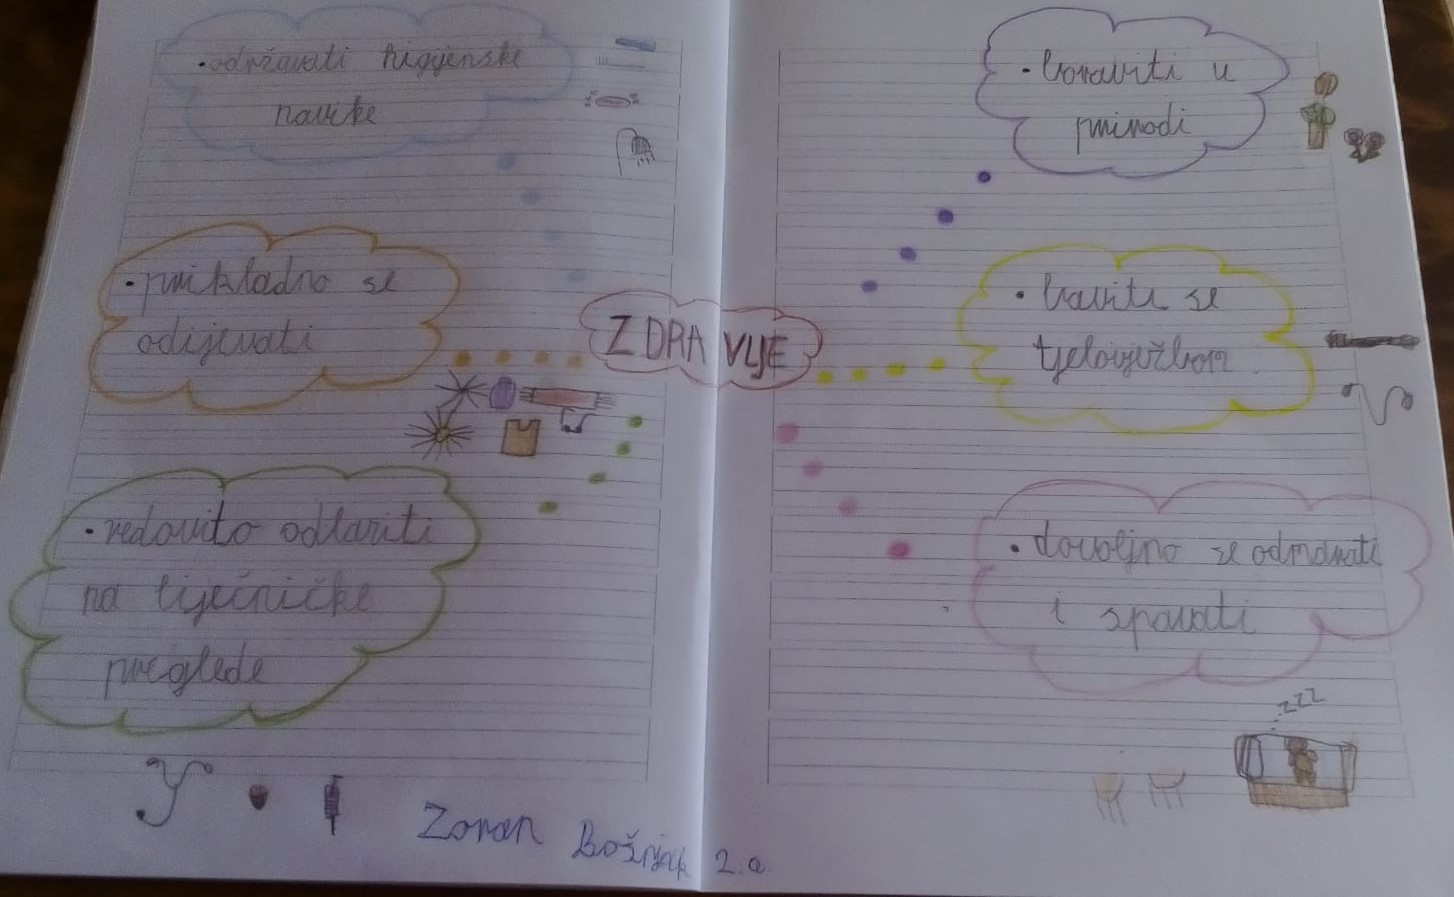 • održavati higijenske
navike
• prikladno se
odijevati
• redovito odlaziti
na liječničke
preglede
ZDRAVLJE
• boraviti u
prirodi
• baviti se
tjelovježbom
• dovoljno se odmarati
i spavati
zzz
Zoran Bošnjak 2.a